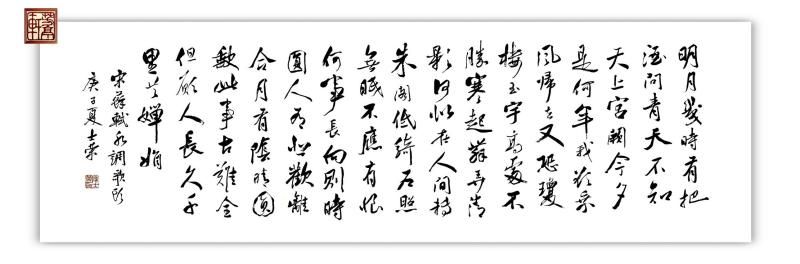 明月幾時有把
酒問青天不知
天上宮闕今夕
是何年我欲乘
風歸去又恐瓊
樓玉宇高處不
勝寒起舞弄清
影何似在人間轉
朱閣低綺户照
無眠不應有恨
何事長向别時
圓人有悲歡離
合月有陰晴圓
缺此事古難全
但願人長久千
里共嬋娟
宋蘇軾水調歌頭
庚子夏士榮